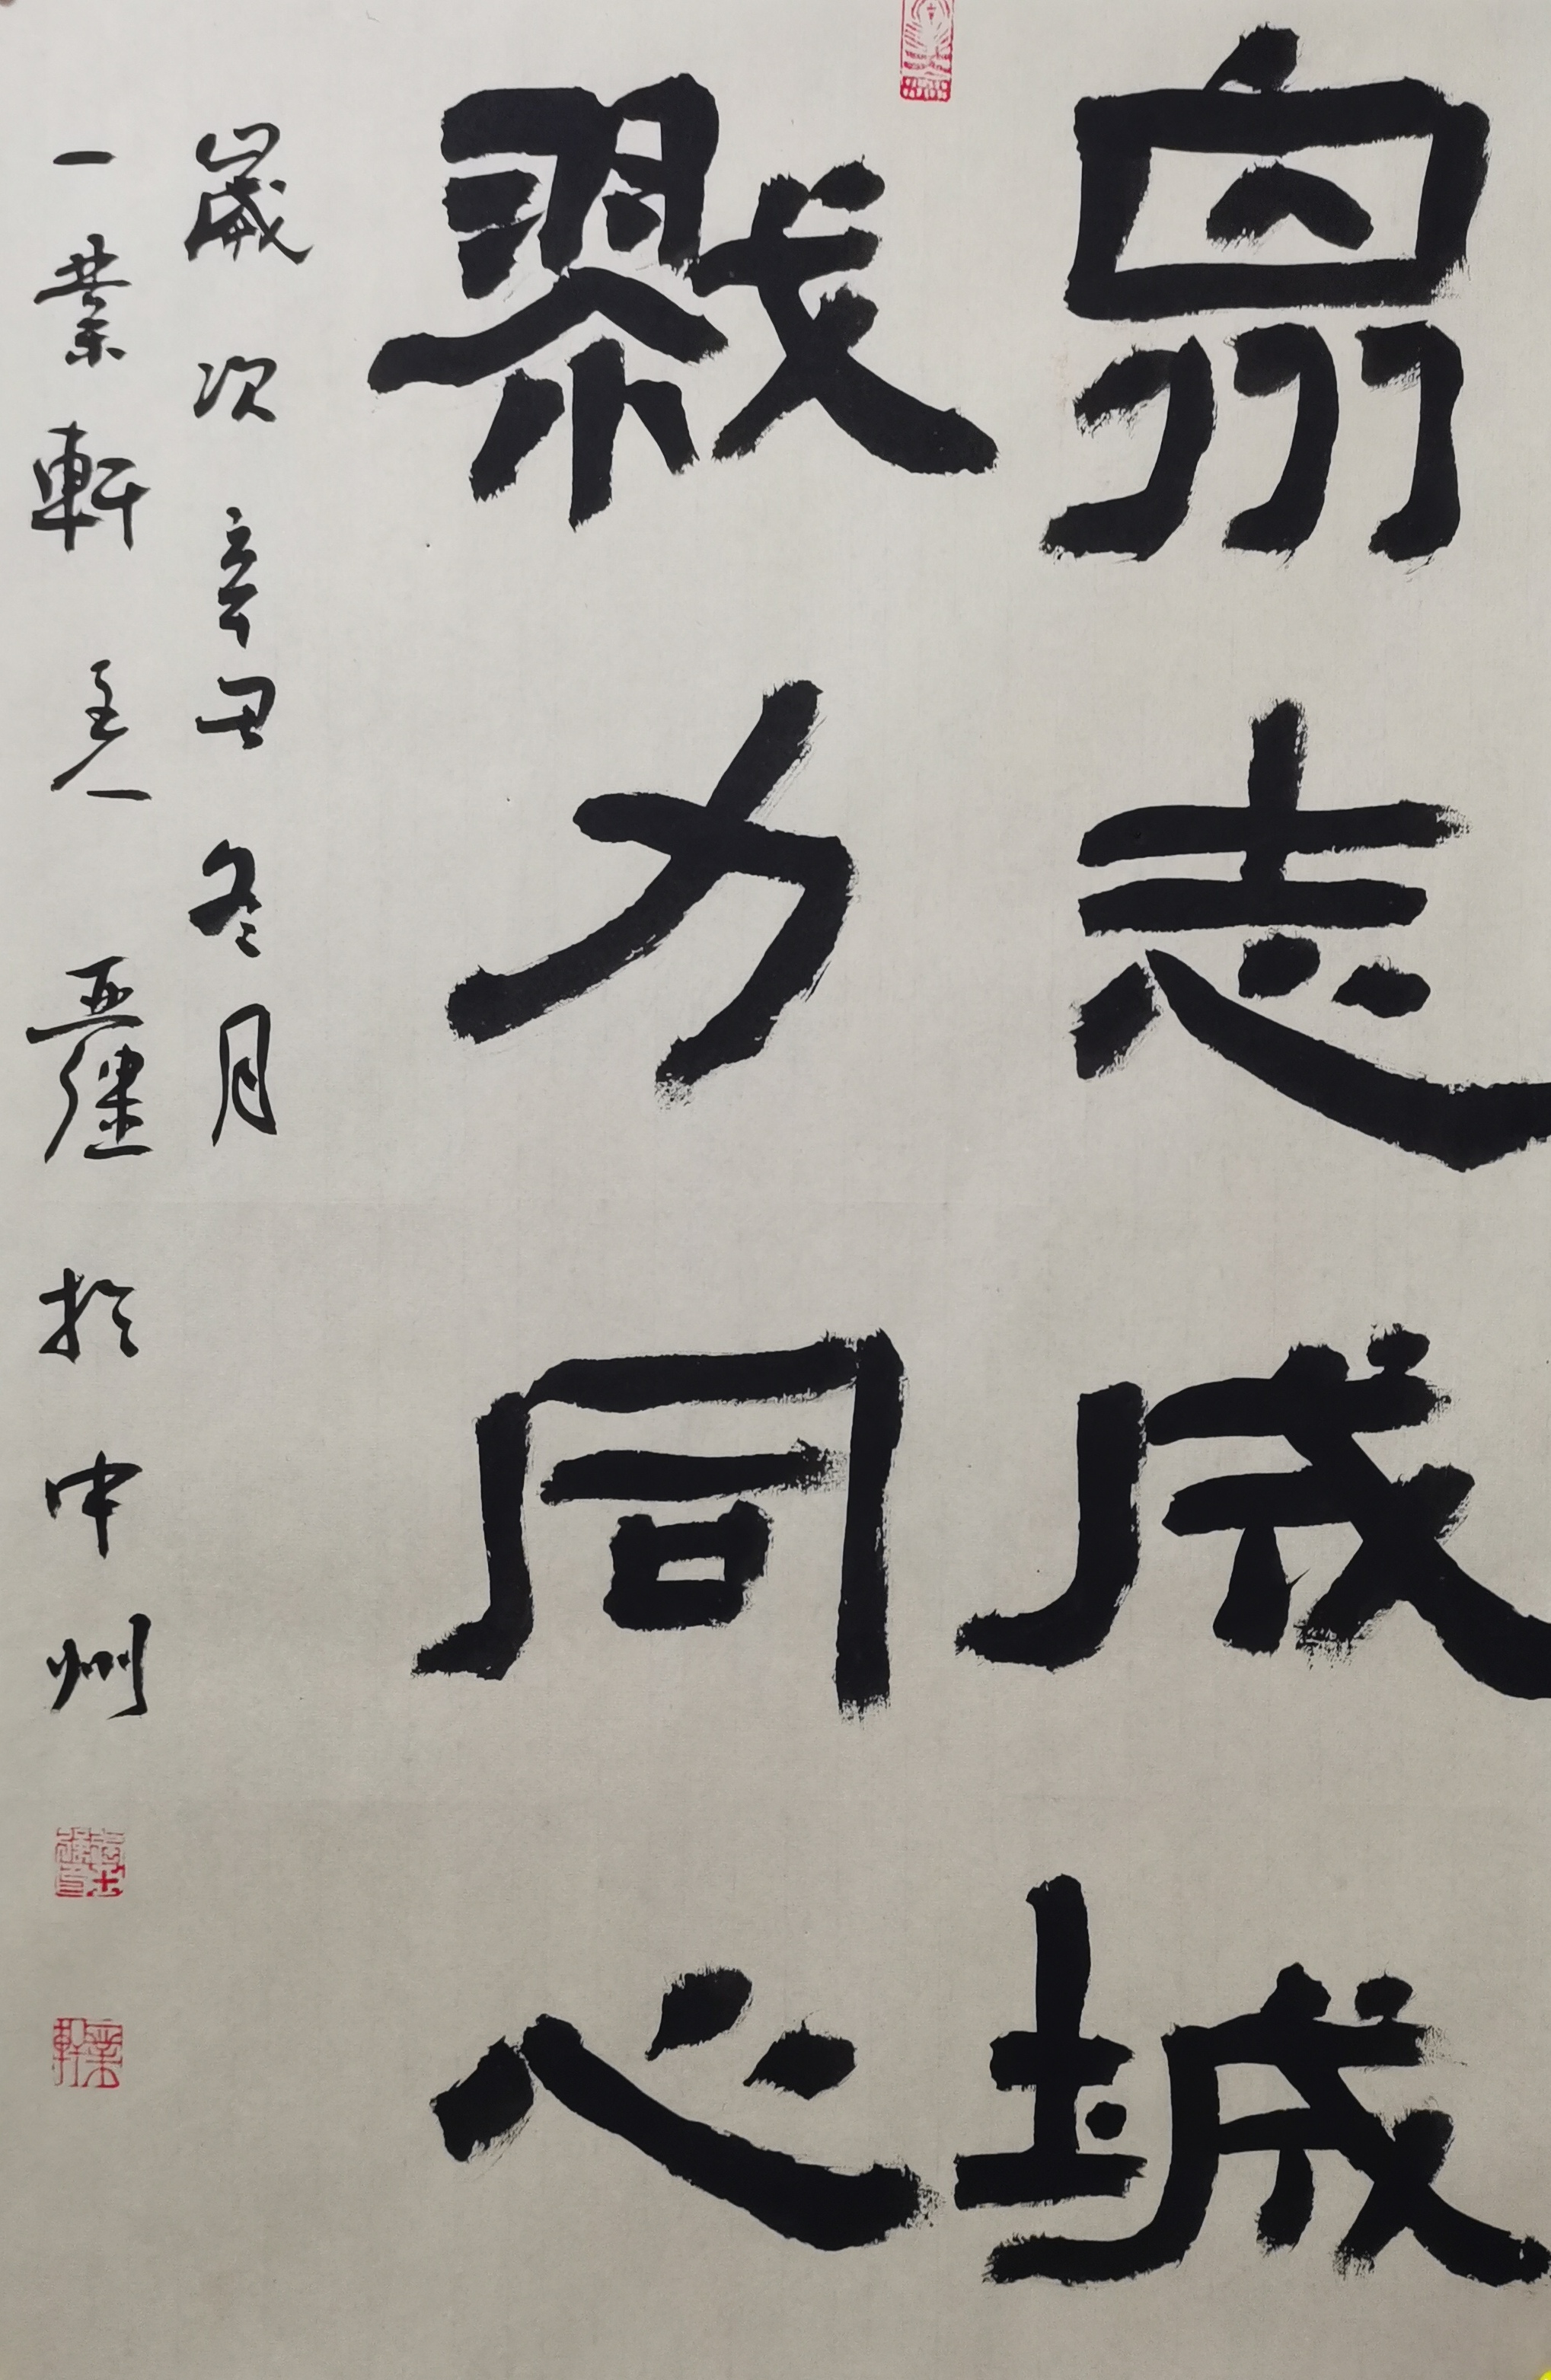 眾志成城
戮力同心
歲次辛丑冬月
一業軒主人亞 於中州